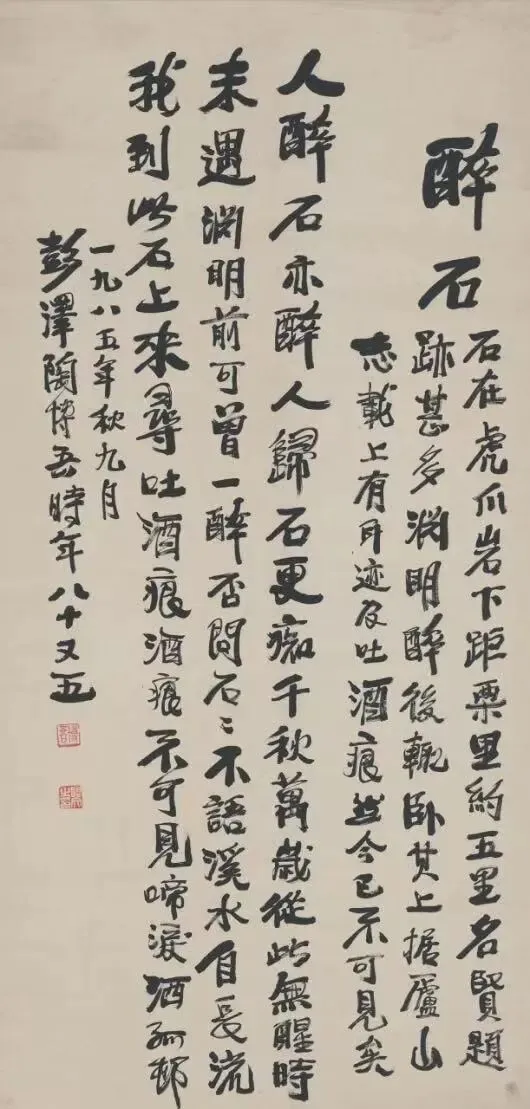 醉石
石在虎爪岩下距栗里約五里名賢題
跡甚多淵明醉後輒卧其上据廬山
志載上有耳迹及吐酒痕然今已不可見矣
人醉石亦醉人歸石更痴千秋萬歲從此無醒時
未遇淵明前可曾一醉否問石〻不語溪水自長流
我到此石上來尋吐酒痕酒痕不可見啼淚洒孤邨
一九八五年秋九月
彭澤陶博吾時年八十又五